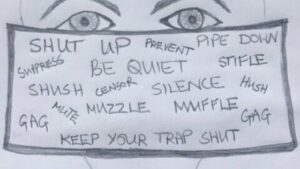 SHUT UP PREVENT PIPE DOWN
SUPPRESS BE QUIET STIFLE
SHUSH CENSOR SILENCE HUSH
MUTE MUZZLE MUFFLE
GAG GAG
KEEP YOUR TRAP SHUT